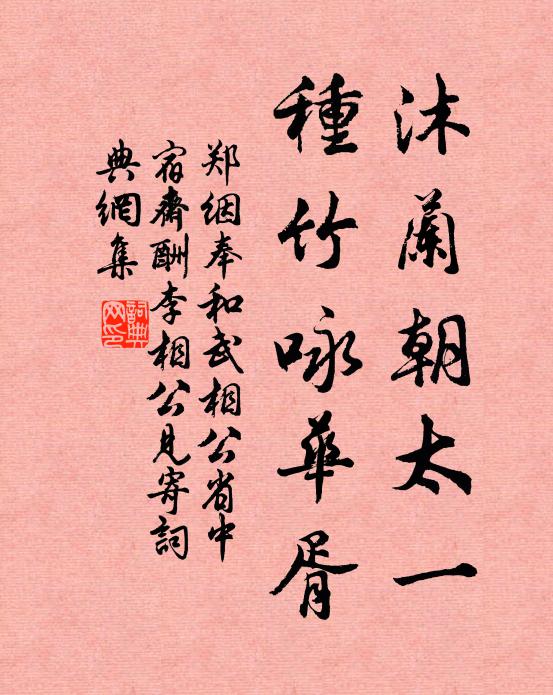 沐蘭朝太一
種竹咏華胥
郑絪奉和武相公省中
宿齋酬李相公見寄詞
典網集
詞典网印